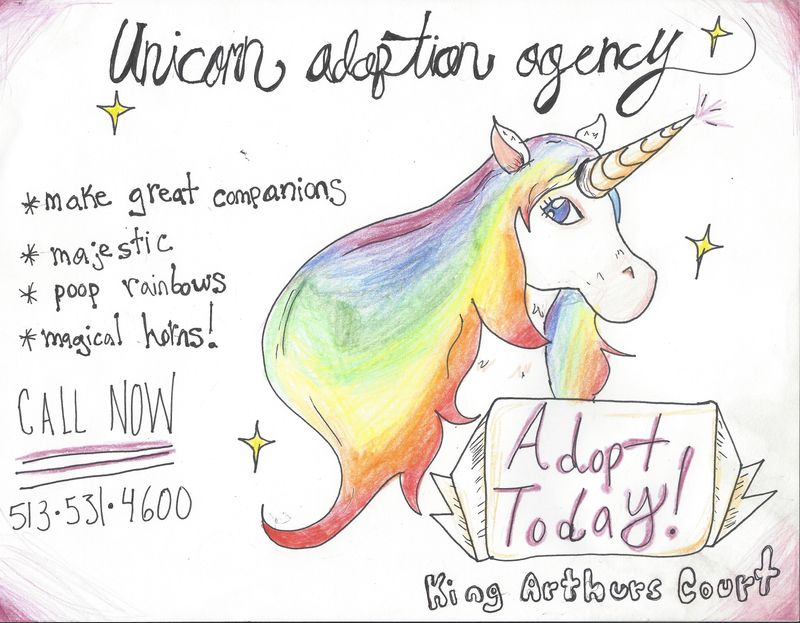 Unicorn adoption agency
*make great companions
*majestic
*poop rainbows
*magical horns!
CALL NOW
513·531·4600
Adopt
Today!
King Arthurs Court